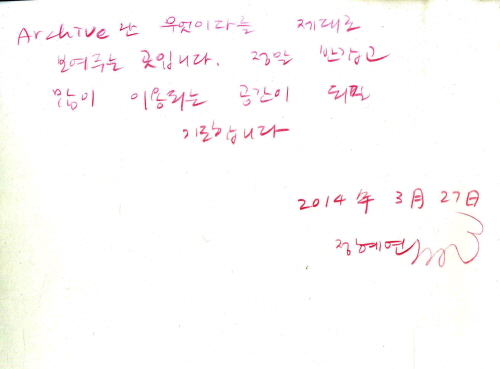 Archive란 무엇이다를 제대로
보여주는 곳입니다. 정말 반갑고
많이 이용되는 공간이 되길
기도합니다
2014 年 3 月 27日
정예연